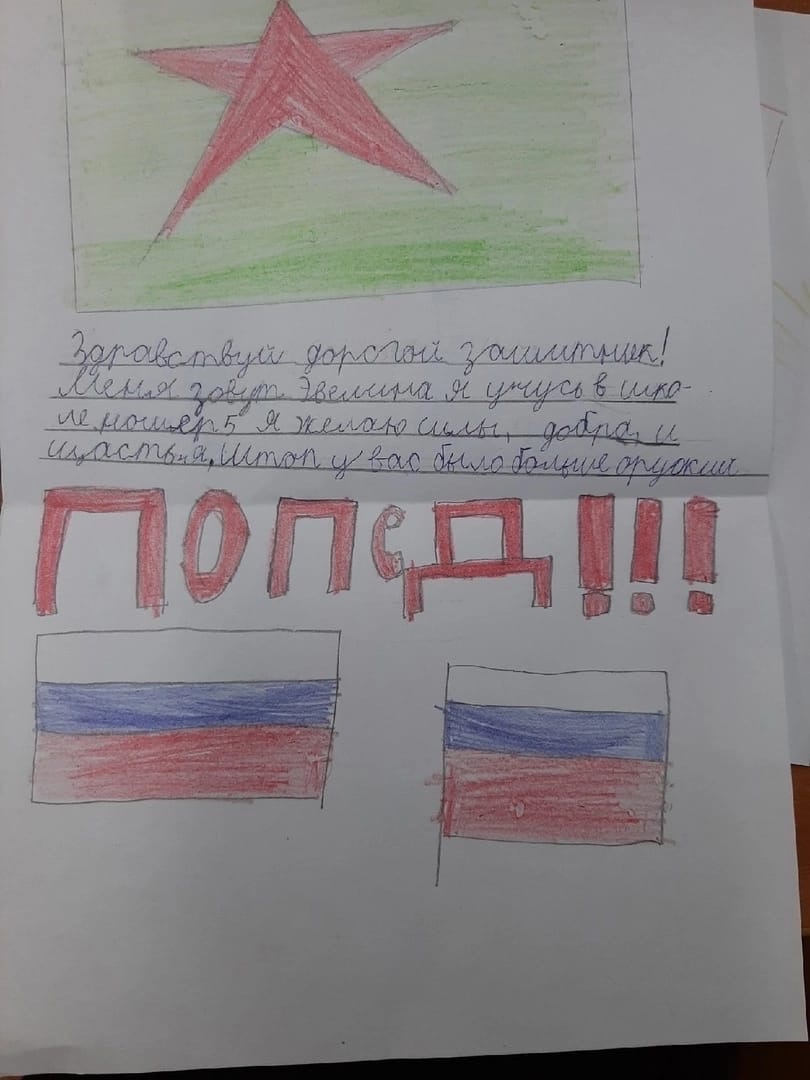 Здравствуй дорогой зашитник!
Меня зовут Эвелина я учусь в шко-
ле номер 5 Я желаю силы, добра, и
щастья, штоп у вас было больше оружий
ПОПЕД!!!